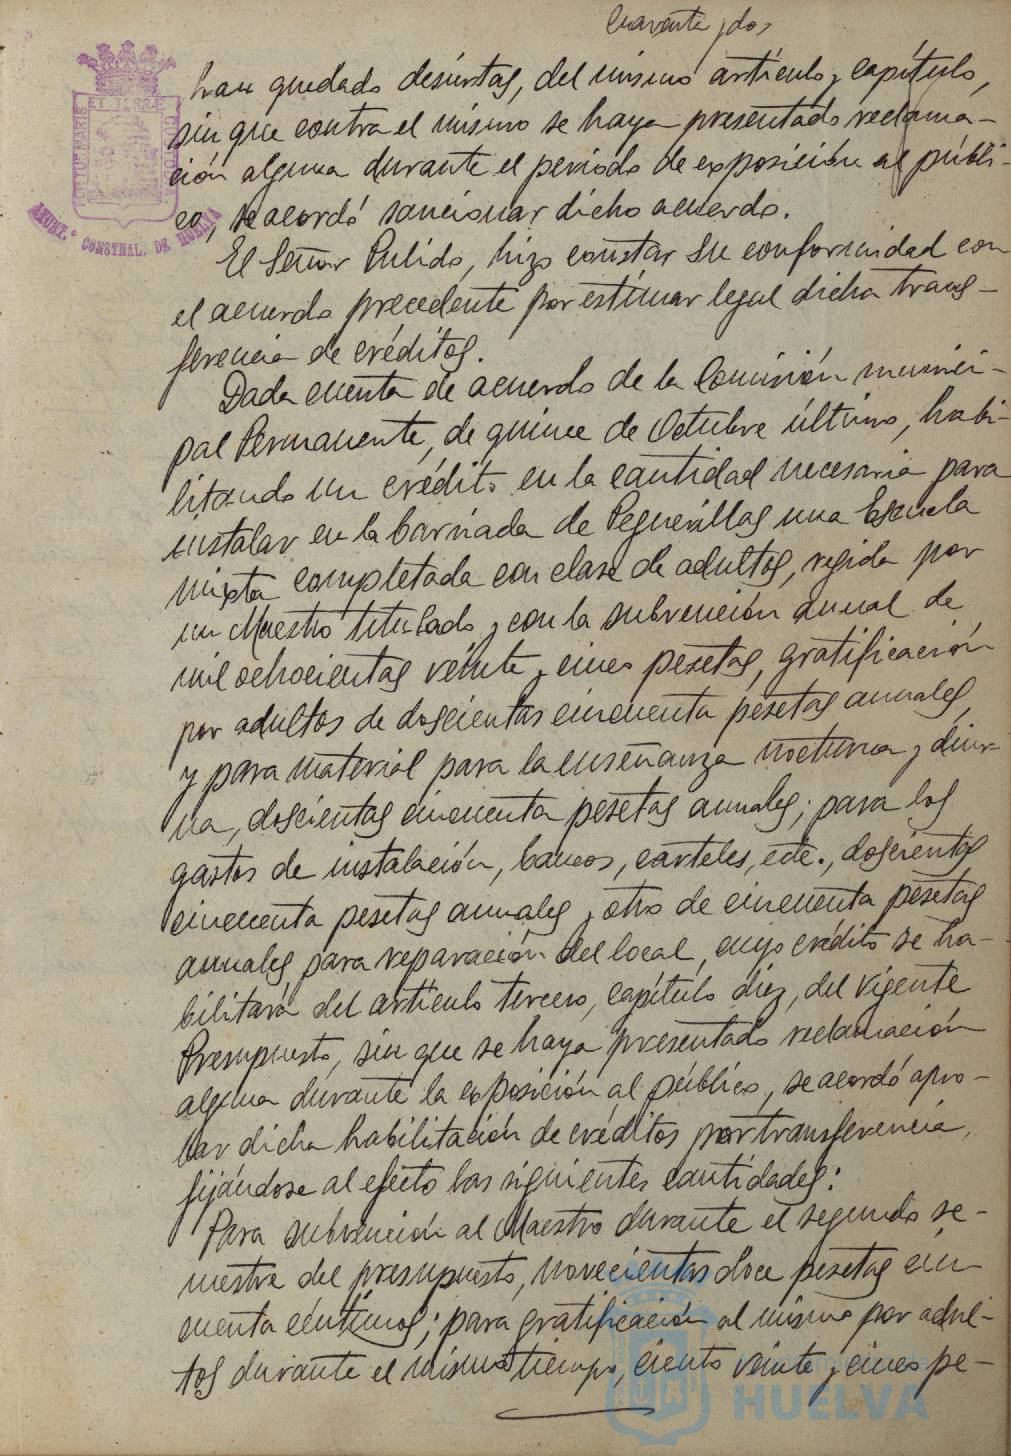 Cuarenta y dos
han quedado desiertas, del mismo artículo y capítulo,
sin que contra el mismo se haya presentado reclama-
ción alguna durante el periodo de exposición al públi-
co, se acordó sancionar dicho acuerdo.
El Señor Pulido, hizo constar su conformidad con
el acuerdo precedente por estimar legal dicha trans-
ferencia de créditos.
Dada cuenta de acuerdo de la Comisión munici-
pal Permanente, de quince de Octubre último, habi-
litando un crédito en la cantidad necesaria para
instalar en la barriada de Peguerillas una Escuela
mixta completada con clase de adultos, regida por
un Maestro titulado y con la subvención anual de
mil ochocientas veinte y cinco pesetas, gratificación
por adultos de doscientas cincuenta pesetas anuales,
y para material para la enseñanza nocturna y diur-
na, doscientas cincuenta pesetas anuales; para los
gastos de instalación, bancos, carteles, etc., doscientas
cincuenta pesetas anuales y otro de cincuenta pesetas
anuales para reparación del local, cuyo crédito se ha-
bilitará del artículo tercero, capítulo diez, del vigente
Presupuesto, sin que se haya presentado reclamación
alguna durante la exposición al público, se acordó apro-
bar dicha habilitación de créditos por transferencia,
fijándose al efecto las siguientes cantidades:
Para subvención al Maestro durante el segundo se-
mestre del presupuesto, novecientas doce pesetas cin
cuenta céntimos; para gratificación al mismo por adul-
tos durante el mismo tiempo, ciento veinte y cinco pe-
AYUNT.º CONSTNAL. DE HUELVA
PORTUS MARIS ET TERRÆ CUSTODIA
HUELVA